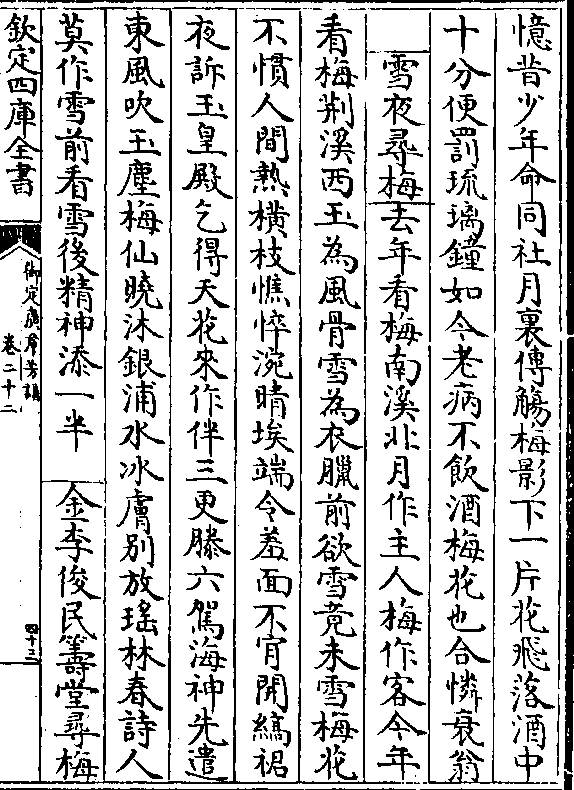 憶昔少年命同社月裏傳觴梅影下一片花飛落酒中
十分便罰琉璃鐘如今老病不飲酒梅花也合憐衰翁
雪夜尋梅去年看梅南溪北月作主人梅作客今年
看梅荆溪西玉為風骨雪為衣臘前欲雪竟未雪梅花
不慣人間熱橫枝憔悴涴晴埃端令羞面不肎開縞裙
夜訴玉皇殿乞得天花來作伴三更滕六駕海神先遣
東風吹玉塵梅仙曉沐銀浦水冰膚别放瑤林春詩人
莫作雪前看雪後精神添一半 金李俊民籌堂尋梅
欽定四庫全書
御定廣羣芳譜
卷二十二
四十三